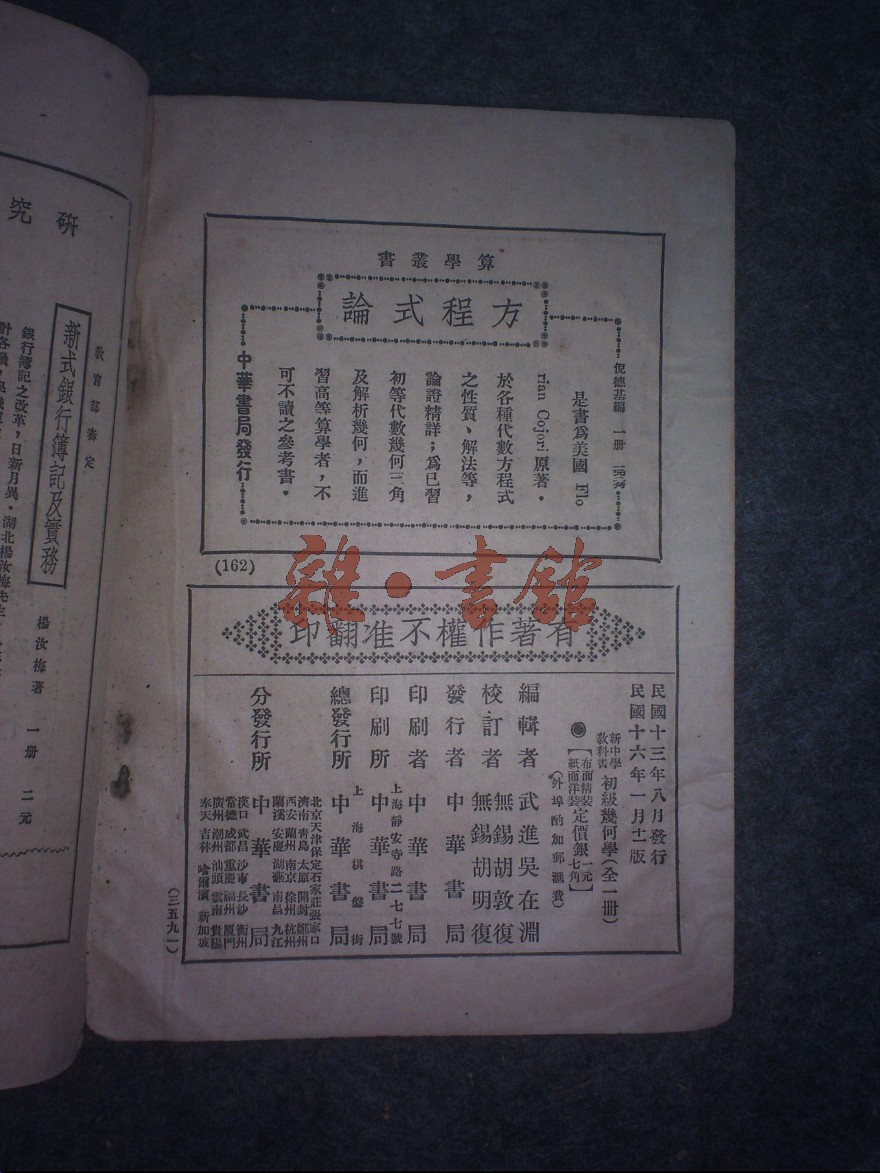 算學叢書
方程式論
倪德基編 一冊
是書爲美國 Flo
rian Cojori 原著．
於各種代數方程式
之性質、解法等，
論證精詳；爲已習
初等代數幾何三角
及解析幾何，而進
習高等算學者，不
可不讀之參考書．
中華書局發行
(162)
雜·書館
有著作權不准翻印
民國十三年八月發行
民國十六年一月十一版
新中學教科書 初級幾何學（全一冊）
【布面精裝 紙面洋裝 定價銀 一元 七角】
（外埠酌加郵滙費）
編輯者 武進吳在淵
校訂者 無錫胡敦復
無錫胡明復
發行者 中華書局
印刷者 中華書局
上海靜安寺路二七七號
印刷所 中華書局
上海棋盤街
總發行所 中華書局
分發行所 中華書局
北京天津保定石家莊張家口
濟南青島太原開封鄭州
西安蘭州南京徐州杭州
蘭溪安慶蕪湖南昌九江
漢口武昌沙市長沙衡州
常德成都重慶福州廈門
廣州潮州汕頭雲南貴陽
吉林哈爾濱新加坡
(三五九一)
研究
教育部審定
新式銀行簿記及實務
楊汝梅著 一冊 二元
銀行簿記之改革，日新月異．湖北楊汝梅先生